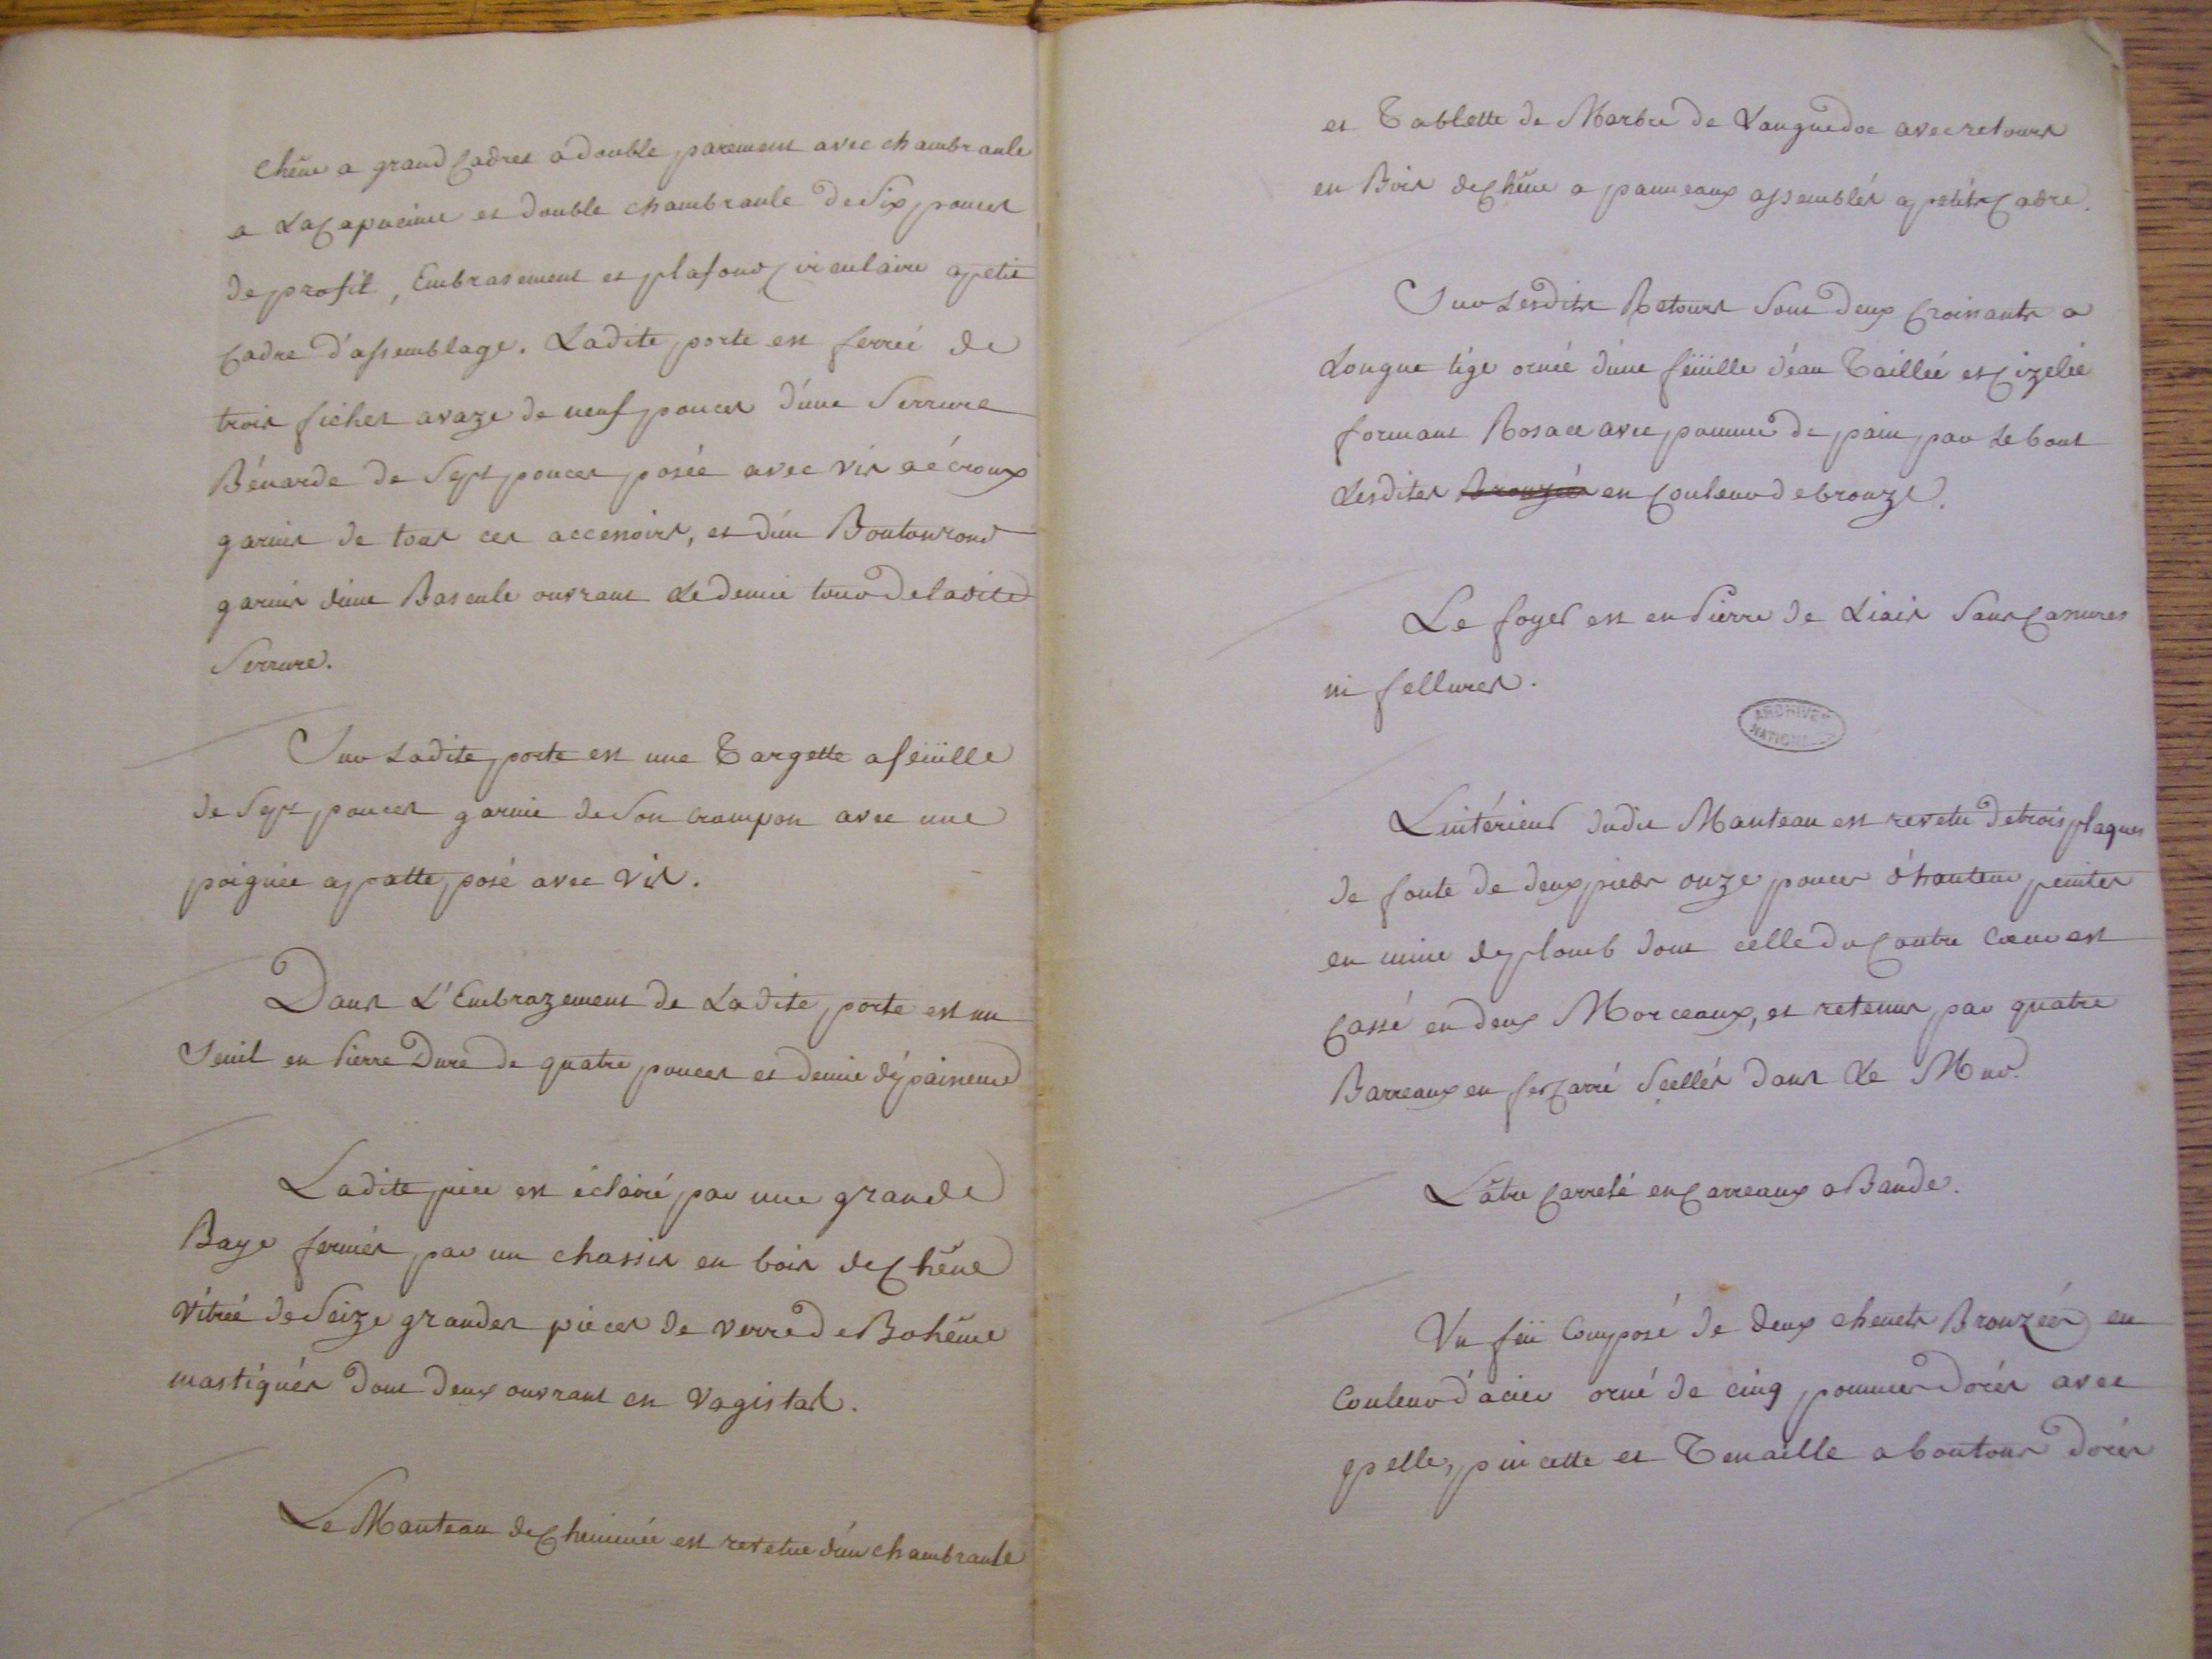 chêne a grand Cadres a double parement avec chambranle
a La Capucine et double chambranle de Six pouces
de profil, Embrasement et plafond Circulaire a petit
Cadre d'assemblage. Ladite porte est ferrée de
trois fiches a vaze de neuf pouces d'une Serrure
Bénarde de Sept pouces posée avec vis a écroux
garnis de tous ces accessoirs, et d'un Bouton rond
garnis d'une Bascule ouvrant Le demie tour de ladite
Serrure.
Sur Ladite porte est une Targette a feüille
de Sept pouces garnie de Son crampon avec une
poignée a patte posé avec vis.
Dans L'Embrazement de Ladite porte est un
Seuil en Pierre Dure de quatre pouces et demie d'épaisseur
Ladite piece est éclairé par une grande
Baye fermés par un chassis en bois de Chêne
Vitrée de Seize grandes pieces de verre de Bohême
mastiqués dont deux ouvrant en Vagistas.
Le Manteau de Cheminée est retetue d'un chambranle
et Tablette de Marbre de Languedoc avec retours
en Bois de Chêne a panneaux assemblés a petits Cadre.
Sur Lesdits Retours Sont deux Croissants a
Longue tige ornée d'une feüille d'éau Taillée et Cizelée
formant Rosace avec pomme de pain par Le bout
Lesdites Bronzées en Couleur de bronze.
Le foyer est en Pierre de Liais Sans Cassures
ni fellures.
ARCHIVES
NATIONALES
L'intérieur dudit Manteau est revetu de trois plaques
de fonte de deux pieds onze pouces d'hauteur peintes
en mine de plomb dont celle du Contre Cœur est
Cassé en deux Morceaux, et retenus par quatre
Barreaux en fer Carré Scellés dans Le Mur.
L'âtre Carrelé en Carreaux a Bande.
Un feü Composé de deux chenets Bronzées en
Couleur d'acier orné de cinq pommes Dorés avec
pelle, pincette et Tenaille a boutons Dorés